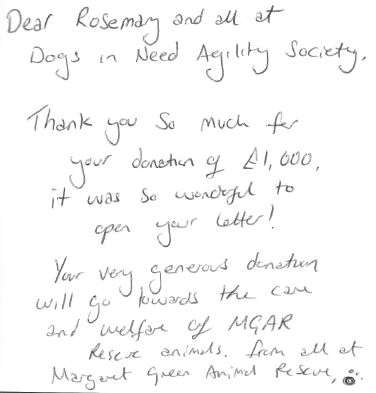 Dear Rosemary and all at
Dogs in Need Agility Society.
Thank you so much for
your donation of £1,000,
it was so wonderful to
open your letter!
Your very generous donation
will go towards the care
and welfare of MGAR
Rescue animals. From all at
Margaret Green Animal Rescue,